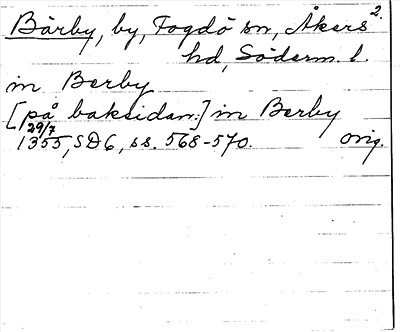 Bärby, by, Fogdö sn, Åkers 2.
hd, Söderm. l.
in Berby
[på baksidan:] in Berby
29/7
1355, SD 6, ss. 568-570. orig.